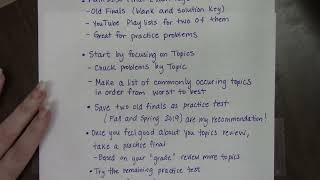 • Old Finals (blank and solution key)
• YouTube Playlists for two of them
• Great for practice problems
• Start by focusing on Topics
- Chuck problems by Topic
- Make a list of commonly occuring topics
in order from worst to best
• Save two old finals as practice test
(Fall and Spring 2019) are my recommendation!
• Once you feel good about you topics review,
take a practice final
- Based on your "grade" review more topics
• Try the remaining practice test